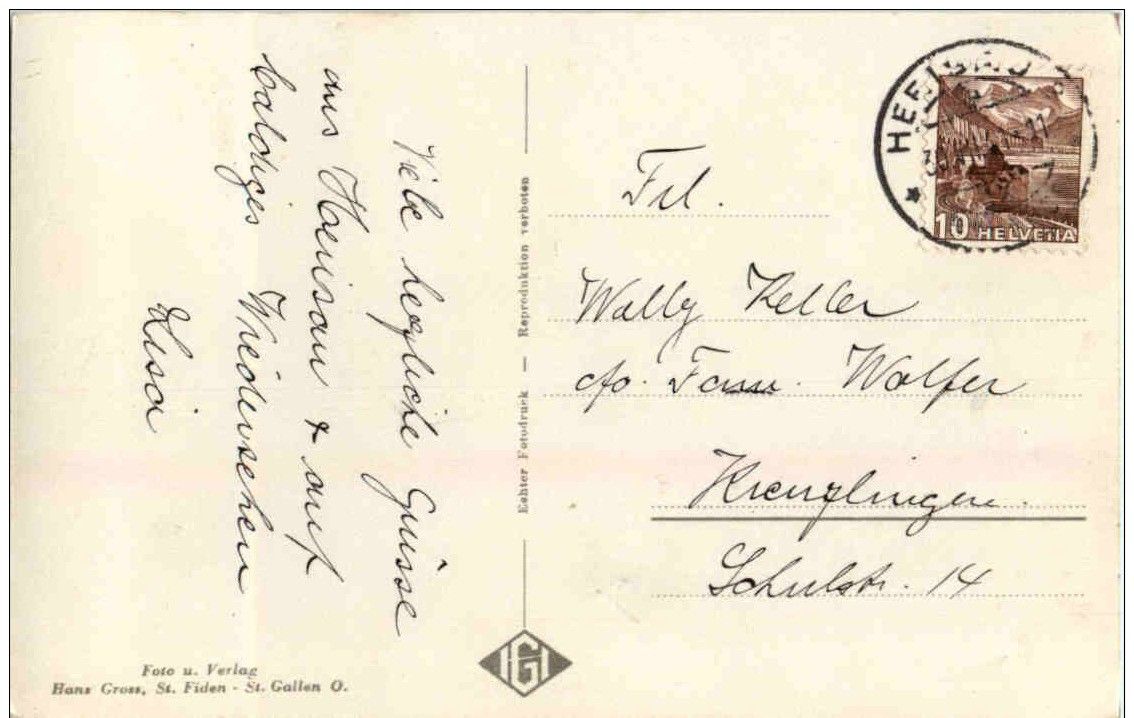 Viele herzliche Grüsse
aus Herisau & auf
baldiges Wiedersehen
Lusia
Echter Fotodruck — Reproduktion verboten
Foto u. Verlag
Hans Gross, St. Fiden - St. Gallen O.
HGI
HERISAU
10 HELVETIA
Frl.
Wally Keller
c/o. Fam. Wolfer
Kreuzlingen.
Schulstr. 14